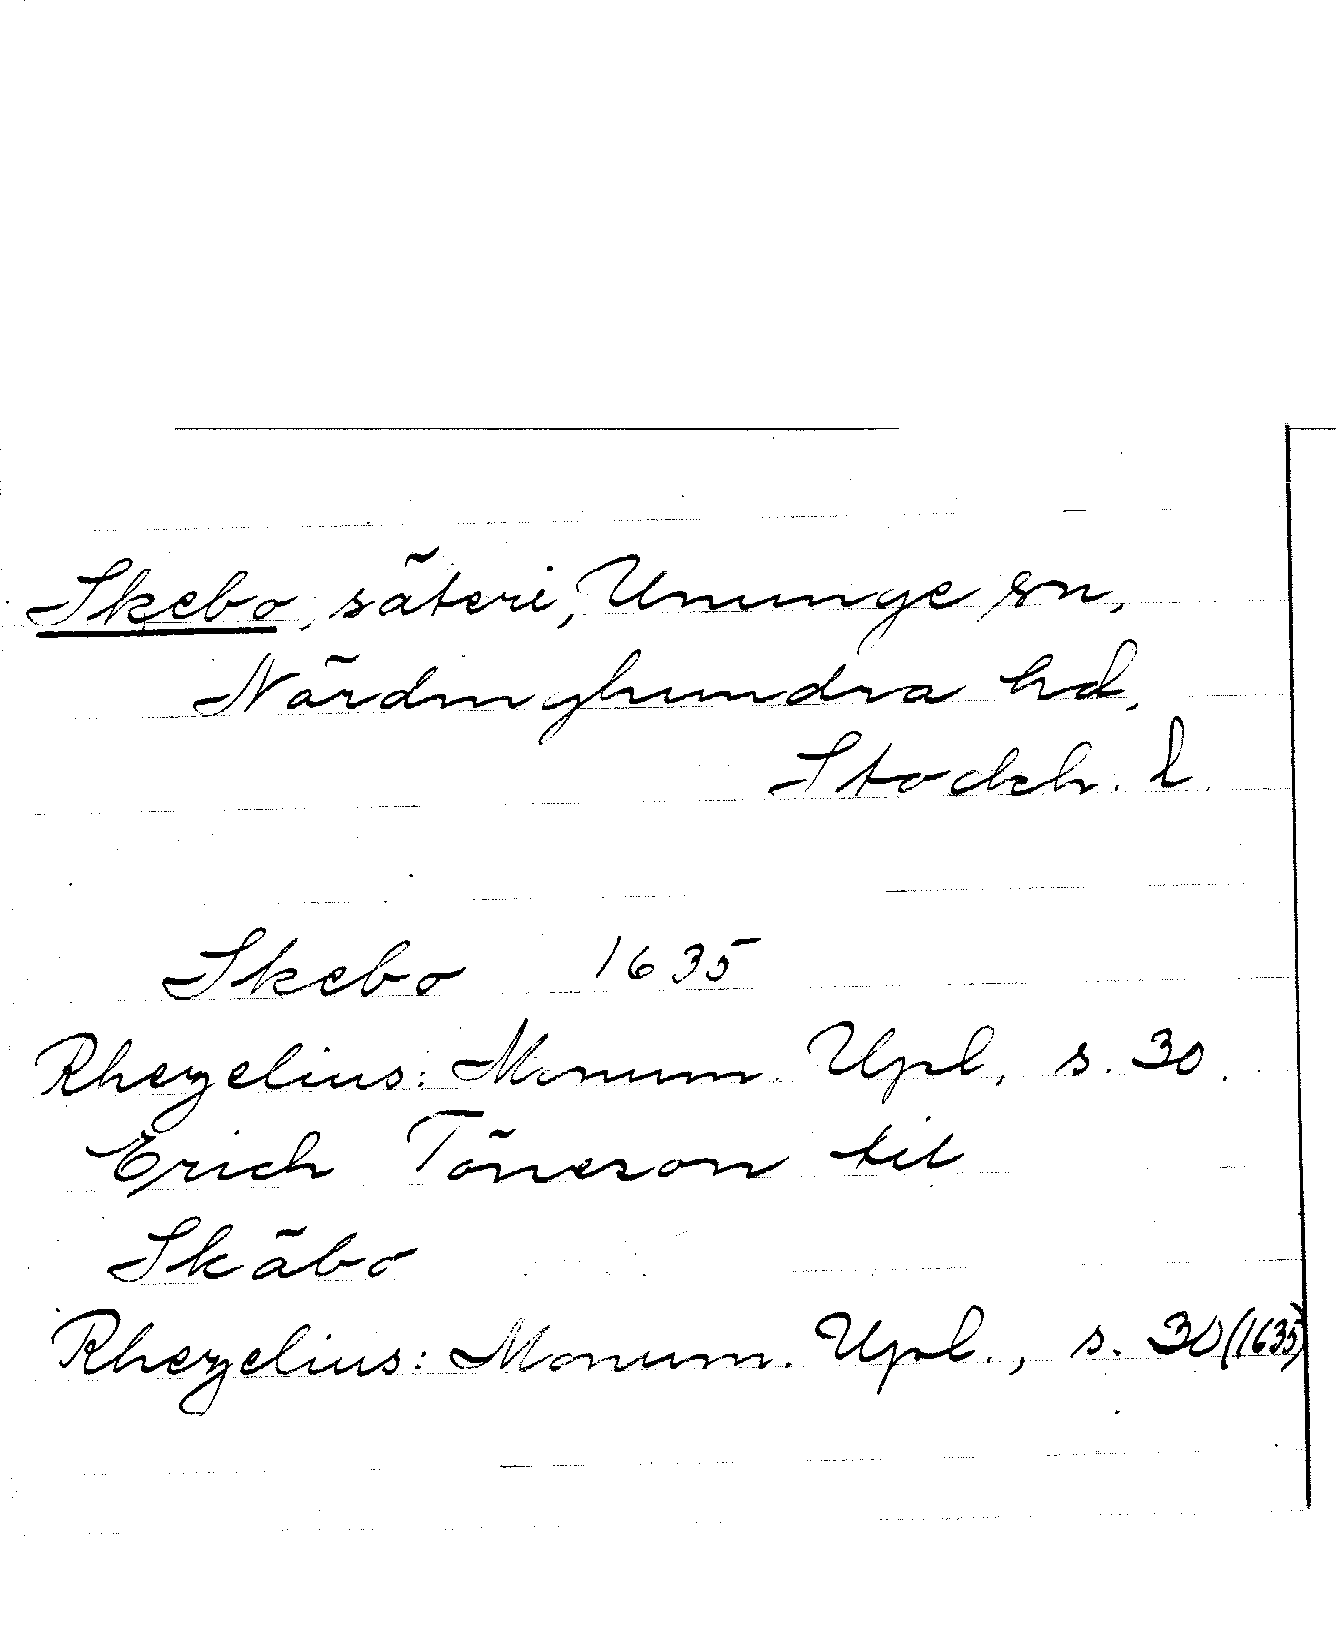 Skebo, säteri, Ununge sn,
Närdinghundra hd,
Stockh. l.
Skebo 1635
Rhezelius: Monum. Upl, s. 30.
Erich Töneson til
Skäbo
Rhezelius: Monum. Upl., s. 30 (1635)